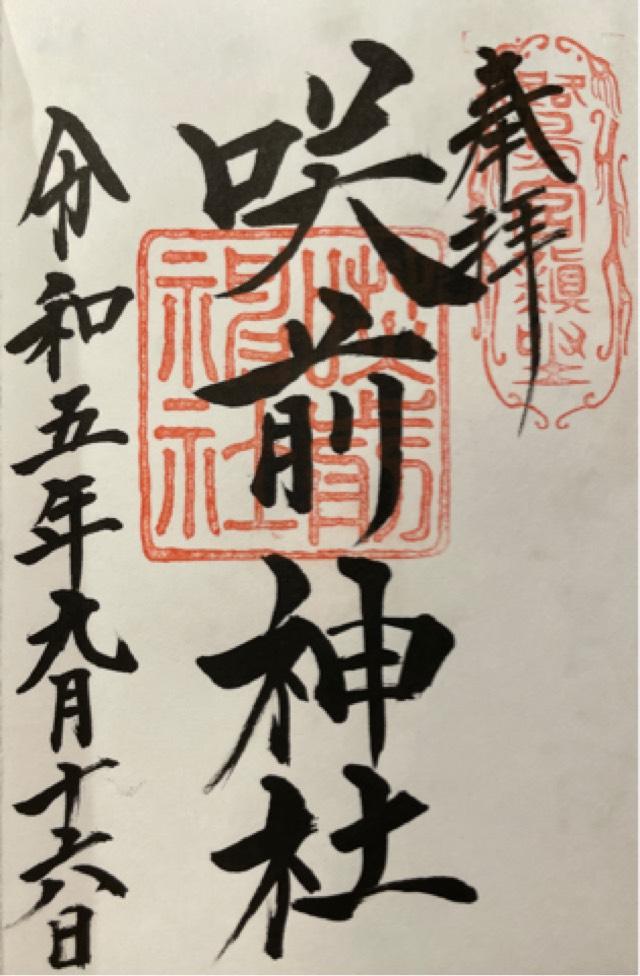 奉拝
咲前神社
令和五年九月十六日
咲前神社